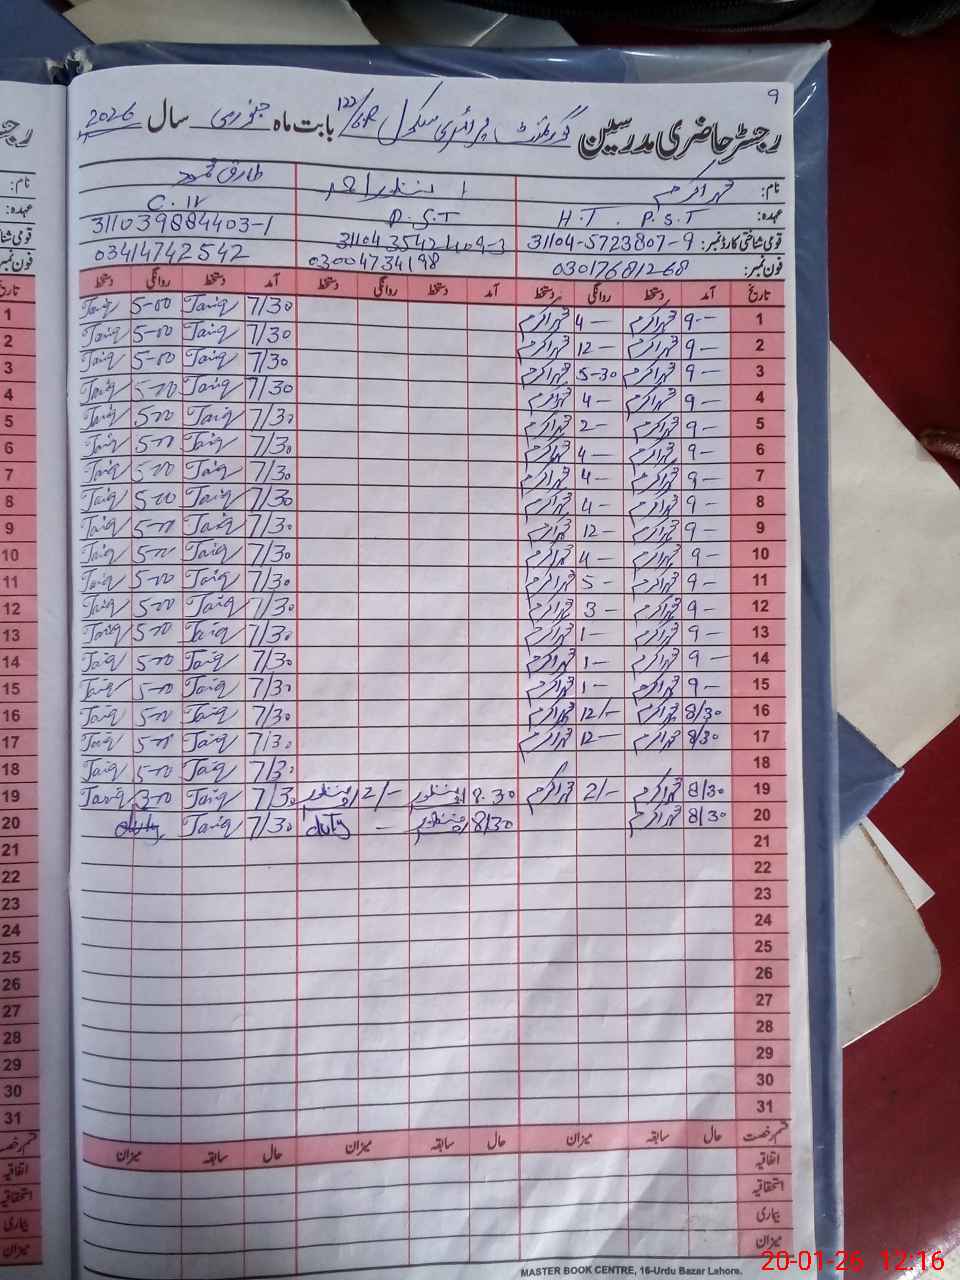 9
رجسٹر حاضری مدرسین گورنمنٹ پرائمری سکول 122/6R بابت ماہ جنوری سال 2026
نام: محمد اکرم طارق محمود
عہدہ: H.T. P.S.T P.S.T C.IV
قومی شناختی کارڈ نمبر: 31104-5723807-9 311039884403-1
فون نمبر: 03017681268 03004734198 03414742542
تاریخ آمد دستخط روانگی دستخط آمد دستخط روانگی دستخط آمد دستخط روانگی دستخط
1 9-- محمد اکرم 4- محمد اکرم 7/30 Tariq 5-00 Tariq
2 9- محمد اکرم 12- محمد اکرم 7/30 Tariq 5-00 Tariq
3 9- محمد اکرم 5-30 محمد اکرم 7/30 Tariq 5-00 Tariq
4 9- محمد اکرم 4- محمد اکرم 7/30 Tariq 5-00 Tariq
5 9- محمد اکرم 2- محمد اکرم 7/30 Tariq 5-00 Tariq
6 9- محمد اکرم 4- محمد اکرم 7/30 Tariq 5-00 Tariq
7 9- محمد اکرم 4- محمد اکرم 7/30 Tariq 5-00 Tariq
8 9- محمد اکرم 4- محمد اکرم 7/30 Tariq 5-00 Tariq
9 9- محمد اکرم 12- محمد اکرم 7/30 Tariq 5-00 Tariq
10 9- محمد اکرم 4- محمد اکرم 7/30 Tariq 5-00 Tariq
11 9- محمد اکرم 5- محمد اکرم 7/30 Tariq 5-00 Tariq
12 9- محمد اکرم 3- محمد اکرم 7/30 Tariq 5-00 Tariq
13 9- محمد اکرم 1- محمد اکرم 7/30 Tariq 5-00 Tariq
14 9- محمد اکرم 1- محمد اکرم 7/30 Tariq 5-00 Tariq
15 9- محمد اکرم 1- محمد اکرم 7/30 Tariq 5-00 Tariq
16 8/30 محمد اکرم 12/- محمد اکرم 7/30 Tariq 5-00 Tariq
17 8/30 محمد اکرم 12- محمد اکرم 7/30 Tariq 5-00 Tariq
18 7/30 Tariq 5-00 Tariq
19 8/30 محمد اکرم 2/- محمد اکرم 8.30 2/- 7/30 Tariq 3-00 Tariq
20 8/30 محمد اکرم 8/30 - duty 7/30 Tariq duty
21
22
23
24
25
26
27
28
29
30
31
قسم رخصت حال سابقہ میزان حال سابقہ میزان حال سابقہ میزان
اتفاقیہ
استحقاقیہ
بیماری
میزان
MASTER BOOK CENTRE, 16-Urdu Bazar Lahore.
20-01-26 12:16